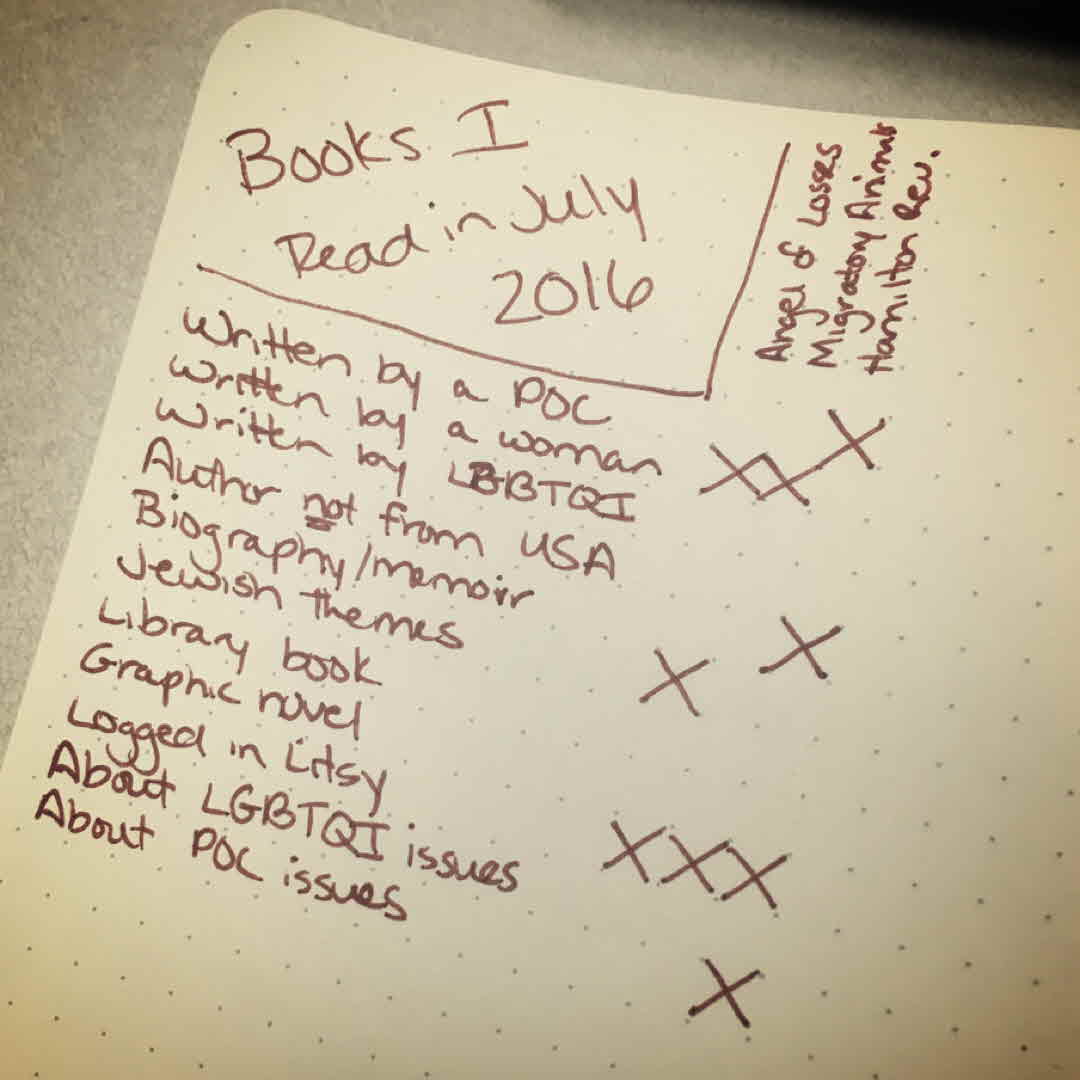 Books I
Read in July
2016
Angel of Losses
Migratory Animals
Hamilton Rev.
Written by a POC
Written by a woman
Written by LGBTQI
Author not from USA
Biography/memoir
Jewish themes
Library book
Graphic novel
Logged in Litsy
About LGBTQI issues
About POC issues
X
X X
X
X
X X X
X